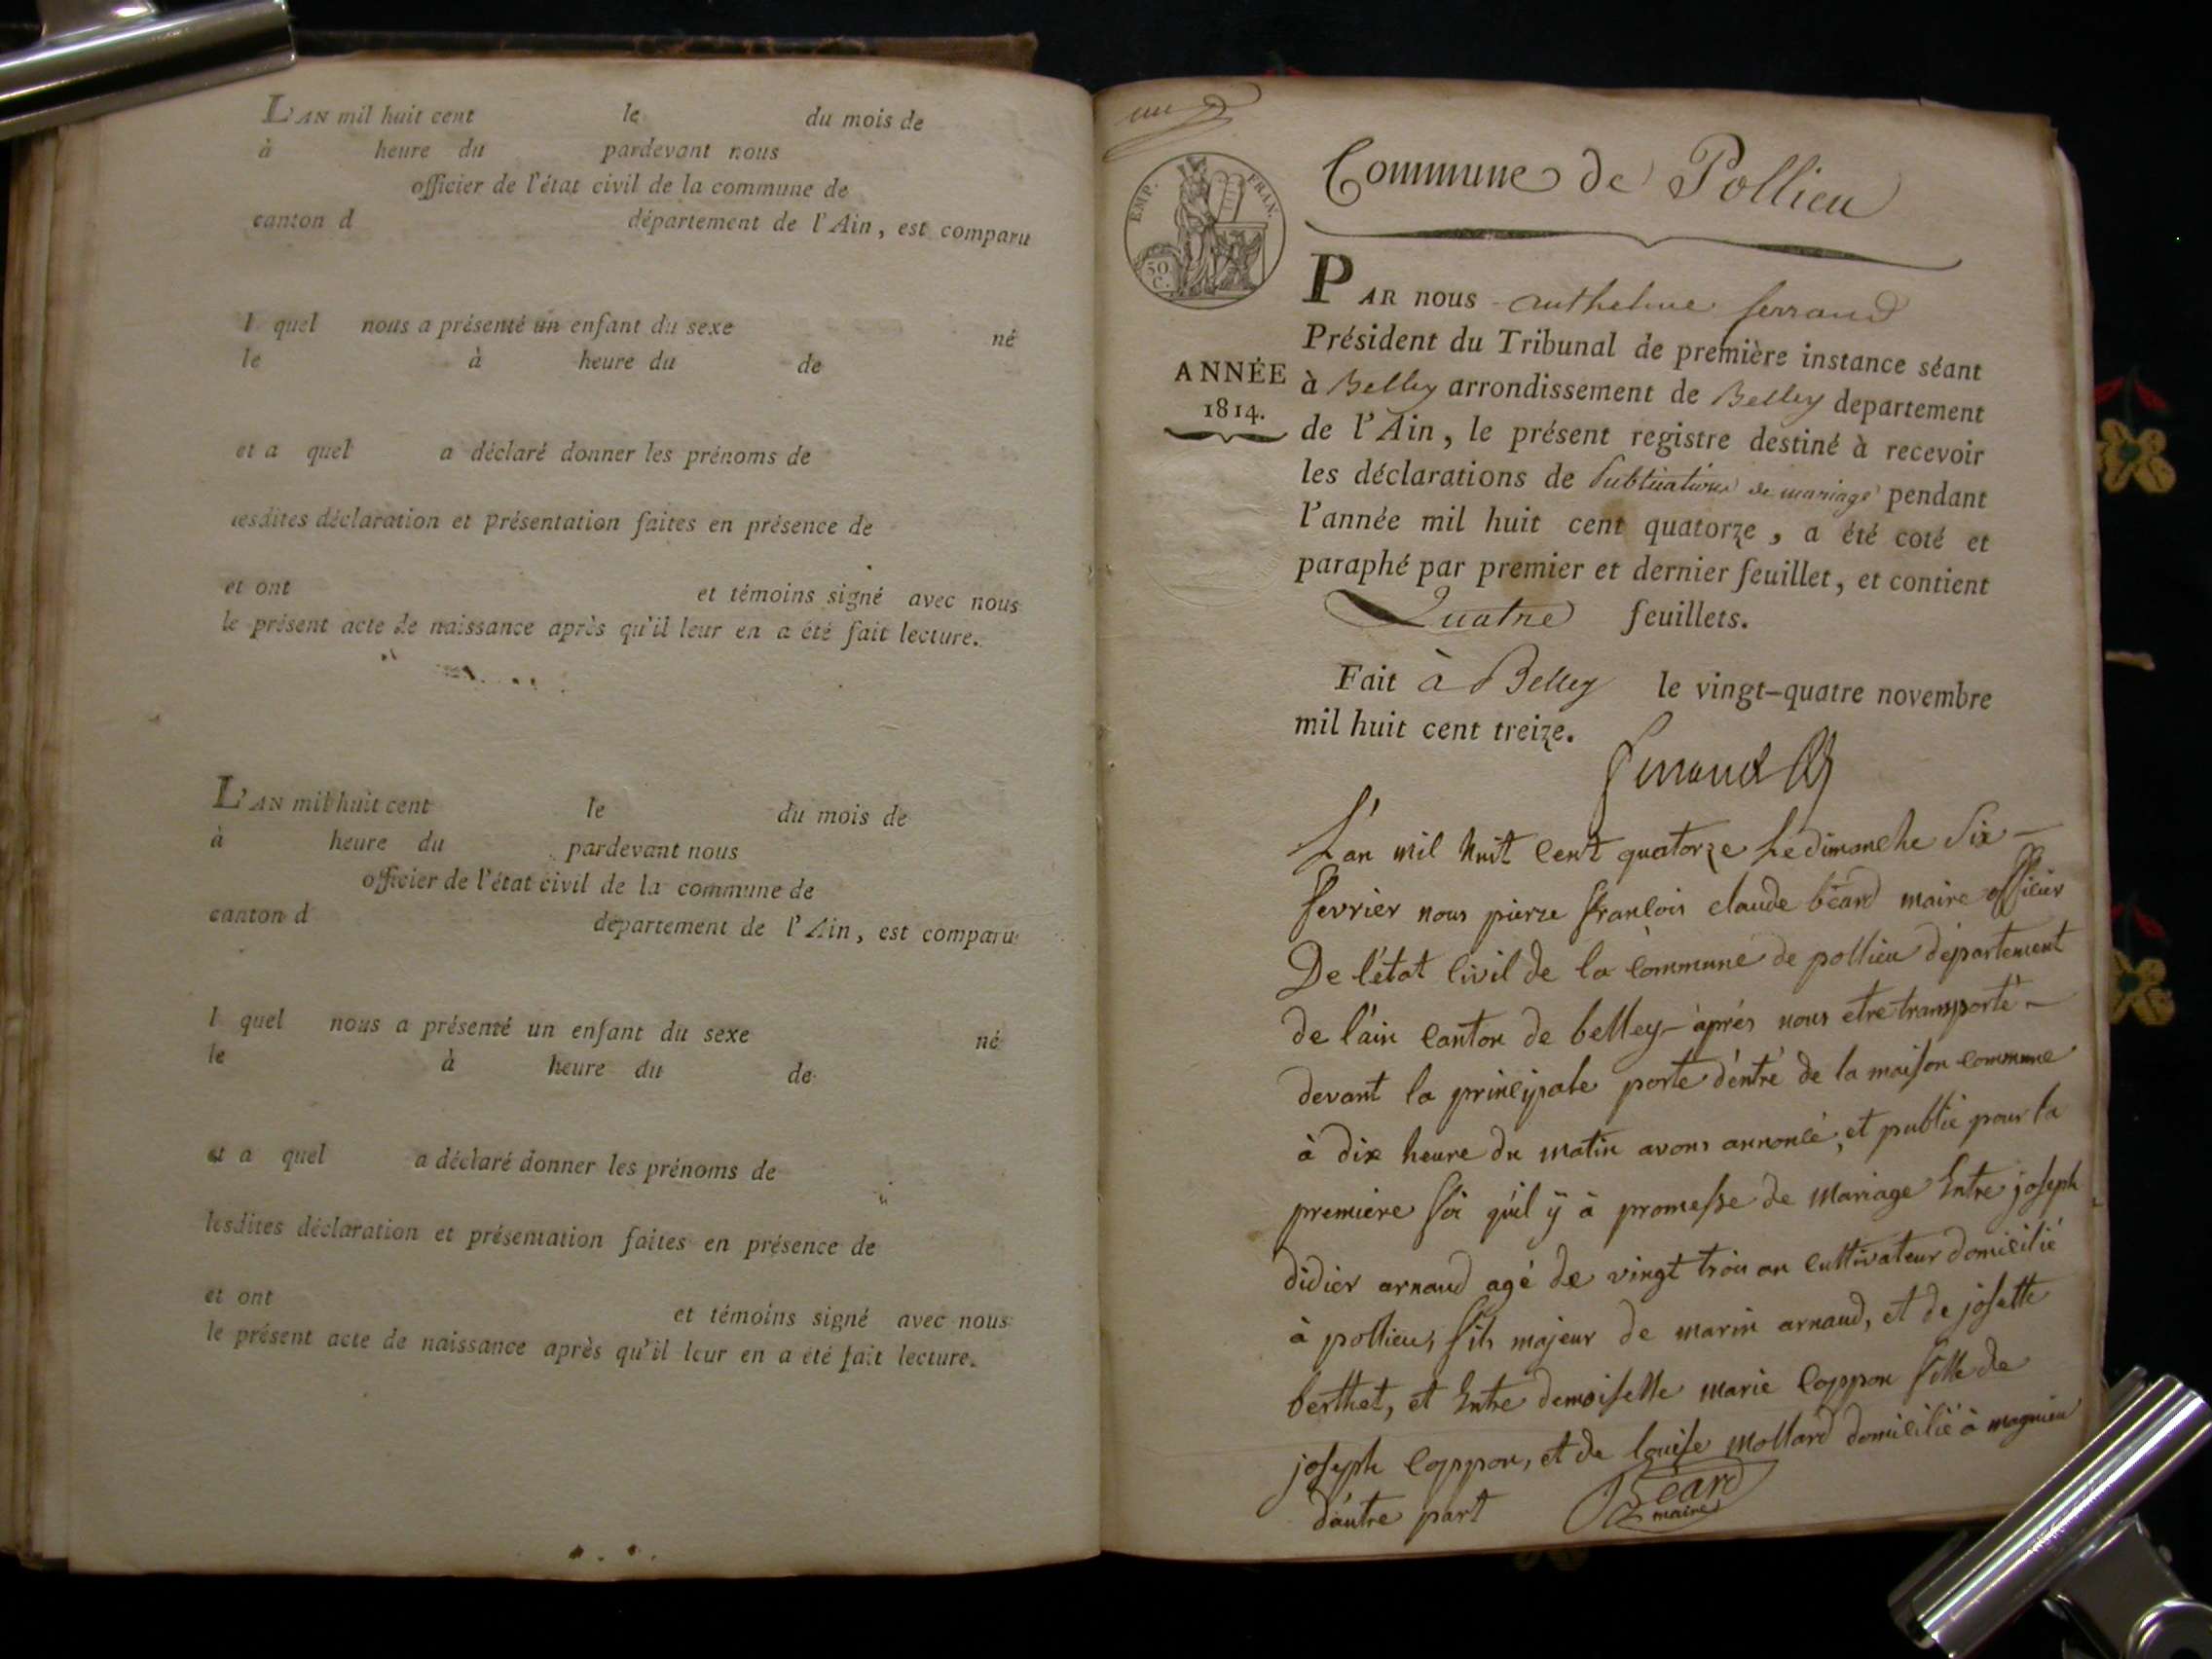 L'AN mil huit cent le du mois de
à heure du pardevant nous
officier de l'état civil de la commune de
canton d département de l'Ain, est comparu
l quel nous a présenté un enfant du sexe né
le à heure du de
et a quel a déclaré donner les prénoms de
lesdites déclaration et présentation faites en présence de
et ont et témoins signé avec nous
le présent acte de naissance après qu'il leur en a été fait lecture.
L'AN mil huit cent le du mois de
à heure du pardevant nous
officier de l'état civil de la commune de
canton d département de l'Ain, est comparu
l quel nous a présenté un enfant du sexe né
le à heure du de
et a quel a déclaré donner les prénoms de
lesdites déclaration et présentation faites en présence de
et ont et témoins signé avec nous
le présent acte de naissance après qu'il leur en a été fait lecture.
un
EMP. FRAN.
50
C.
Commune de Pollieu
PAR nous anthelme ferrand
Président du Tribunal de première instance séant
ANNÉE
1814.
à Belley arrondissement de Belley departement
de l'Ain, le présent registre destiné à recevoir
les déclarations de Publications de mariage pendant
l'année mil huit cent quatorze, a été coté et
paraphé par premier et dernier feuillet, et contient
Quatre feuillets.
Fait à Belley le vingt-quatre novembre
mil huit cent treize.
ferrand
L'an mil huit cent quatorze Le dimanche Six
fevrier nous pierre françois claude béard maire officier
De l'état civil de la commune de pollieu département
de l'ain canton de belley après nous etre transporté
devant la principale porte d'entré de la maison commune
à dix heure du matin avons annoncé, et publié pour la
premiere foi qu'il ÿ à promesse de mariage Entre joseph
didier arnaud agé de vingt trois an cultivateur domicilié
à pollieu, fils majeur de marin arnaud, et de josette
berthet, et Entre demoiselle marie coppon fille de
joseph coppon, et de louise mollard domicilié à magnieu
d'autre part
Béard
maire